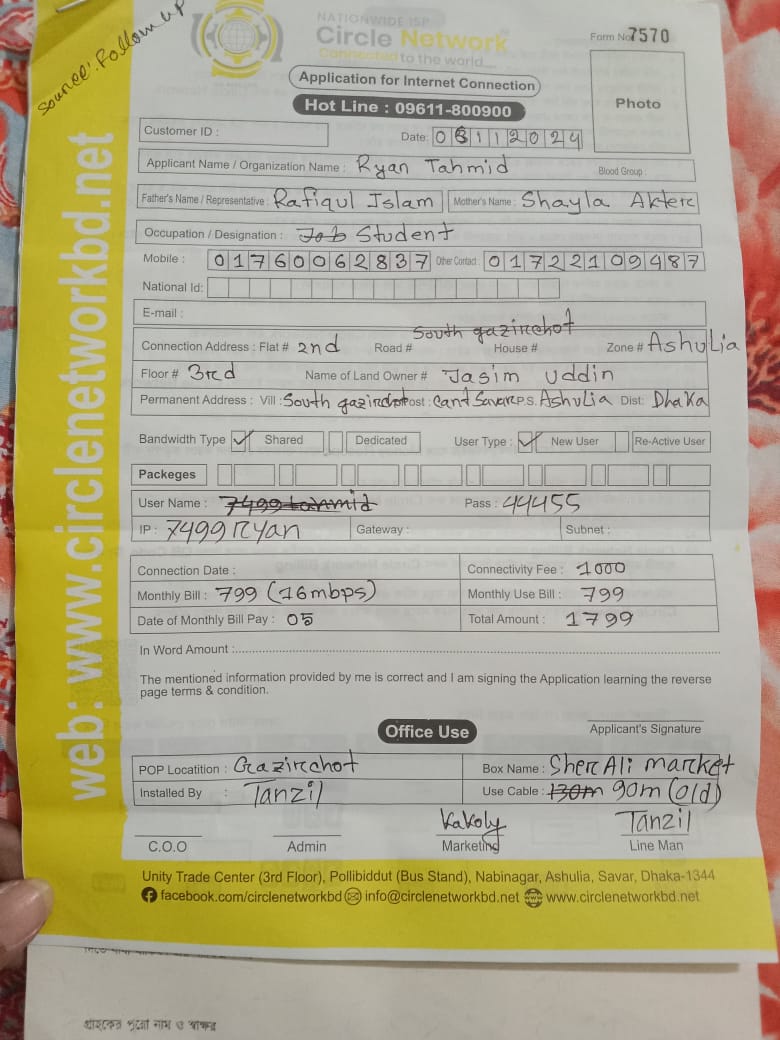 Source: Follow up
NATIONWIDE ISP
Circle Network
Connected to the world....
Form No 7570
Application for Internet Connection
Hot Line : 09611-800900
Photo
Customer ID :
Date: 03112024
Applicant Name / Organization Name : Ryan Tahmid Blood Group :
Father's Name / Representative : Rafiqul Islam Mother's Name : Shayla Akter
Occupation / Designation : Job Student
Mobile : 01760062837 Other Contact : 01722109487
National Id:
E-mail :
South gazirchot
Connection Address : Flat # 2nd Road # House # Zone # Ashulia
Floor # 3rd Name of Land Owner # Jasim Uddin
Permanent Address : Vill : South gazirchot Post : Cant Savar P.S. Ashulia Dist: Dhaka
Bandwidth Type Shared Dedicated User Type : New User Re-Active User
Packeges
User Name : 7499tahmid Pass : 44455
IP : 7499Ryan Gateway : Subnet :
Connection Date : Connectivity Fee : 1000
Monthly Bill : 799 (16mbps) Monthly Use Bill : 799
Date of Monthly Bill Pay : 05 Total Amount : 1799
In Word Amount :
The mentioned information provided by me is correct and I am signing the Application learning the reverse
page terms & condition.
Applicant's Signature
Office Use
POP Locatition : Gazirchot Box Name : Sher Ali market
Installed By : Tanzil Use Cable : 130m 90m (old)
Kakoly Tanzil
C.O.O Admin Marketing Line Man
Unity Trade Center (3rd Floor), Pollibiddut (Bus Stand), Nabinagar, Ashulia, Savar, Dhaka-1344
facebook.com/circlenetworkbd info@circlenetworkbd.net www.circlenetworkbd.net
web: www.circlenetworkbd.net
গ্রাহকের পুরো নাম ও স্বাক্ষর